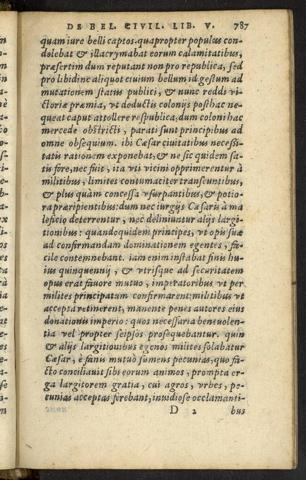 DE BEL. CIVIL. LIB. V. 787
quam iure belli captos. quapropter populus con-
dolebat & illacrymabat eorum calamitatibus,
præsertim dum reputant non pro republica, sed
pro libidine aliquot ciuium bellum id gestum ad
mutationem status publici, & nunc reddi vi-
ctoriæ præmia, vt deductis colonijs posthac ne-
queat caput attollere respublica; dum coloni hac
mercede obstricti, parati sunt principibus ad
omne obsequium. ibi Cæsar ciuitatibus necessi-
tatis rationem exponebat; & ne sic quidem sa-
tis fore, nec fuit, ita vti vicini opprimerentur à
militibus, limites contumaciter transeuntibus,
& plus quàm concessa vsurpantibus, & potio-
ra præripientibus: dum nec iurgijs Cæsaris à ma
leficio deterrentur, nec deliniuntur alijs largi-
tionibus: quandoquidem principes, vt opis suæ
ad confirmandam dominationem egentes, fa-
cile contemnebant. iam enim instabat finis hu-
ius quinquennij, & vtrisque ad securitatem
opus erat fauore mutuo, imperatoribus vt per
milites principatum confirmarent: militibus vt
accepta retinerent, manente penes autores eius
donationis imperio: quos necessaria beneuolen-
tia vel propter seipsos prosequebantur. quin
& alijs largitionibus egenos milites solabatur
Cæsar, è fanis mutuò sumens pecunias, quo fa-
cto conciliauit sibi eorum animos, prompta er-
ga largitorem gratia, cui agros, vrbes, pe-
cunias acceptas ferebant, inuidiose occlamanti-
D 2 bus